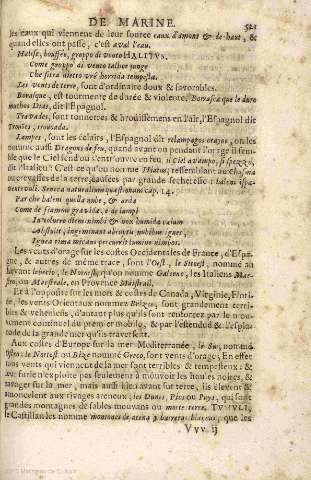 DE MARINE. 521
les eaux qui viennent de leur source eaux d'amont & de haut, &
quand elles ont passé, c'est aval l'eau.
Halise, bouffée, groppo di vento HALITVS.
Come groppo di vento talhor junge
Che sitra dietro vné horrida tempesta.
Les vents de terre, sont d'ordinaire doux & favorables.
Borasque, est tourmente de durée & violente, Borrasca que le duro
muchos Dias, dit l'Espagnol.
Travades, sont tonnerres & broüissemens en l'air, l'Espagnol dit
Truenos, tronada.
Lampes, sont les éclairs, l'Espagnol dit relampagos rayos, on les
nomme aussi Dragons de feu, quand avant ou pendant l'orage il sem-
ble que le Ciel s'end ou s'entr'ouvre en feu, il Ciel avampa, si spezza,
dit l'Italien: C'est ce qu'on nomme Hiatus, ressemblant au Chasma
ou crevasses de la terre, causées par grande secheresse: i baleni ispa-
ventevoli. Seneca naturalium quæstionum cap. 14.
Par che baleni quella nube, & arda
Come de fiamma gravida, e de lampi
Involvere diem nimbi & nox humida cælum
Abstulit, ingeminant abruptis nubibus ignes,
Ignea rima micans percurrit lumine nimbos.
Les vents d'orage sur les costes Occidentales de France, d'Espa-
gne, & autres de mesme trace, sont l'Oest, le Siroest, nommé au
levant lebecio, le Noroest, qu'on nomme Galerne, les Italiens Mae-
stro, ou Maestrale, en Provence Maistrail.
Et à l'opposite sur les mers & costes de Canada, Virginie, Flori-
de, les vents Orientaux nommez Brises, sont grandement terri-
bles & vehemens, d'autant plus qu'ils sont renforcez par le mou-
vement continuel du premier mobile, & par l'estenduë & l'espla-
nade de la grande mer qu'ils traversent.
Aux costes d'Europe sur la mer Mediterranée, le Sur, nommé
Ostro: le Nortest ou Bize nommé Greco, sont vents d'orage, En effet
tous vents qui viennent de la mer sont terribles & tempestueux: &
leur furie n'exploite pas seulement à mouvoir les hautes ondes, &
ravager sur la mer, mais aussi bien avant sur terre, ils élevent &
amoncelent aux rivages areneux, les Dunes, Pics ou Puys, qui sont
grandes montagnes de sables mouvans ou morte terre, TVMVLI,
le Castillan les nomme montones de arena y barreras blancas, que les
Vvv ij